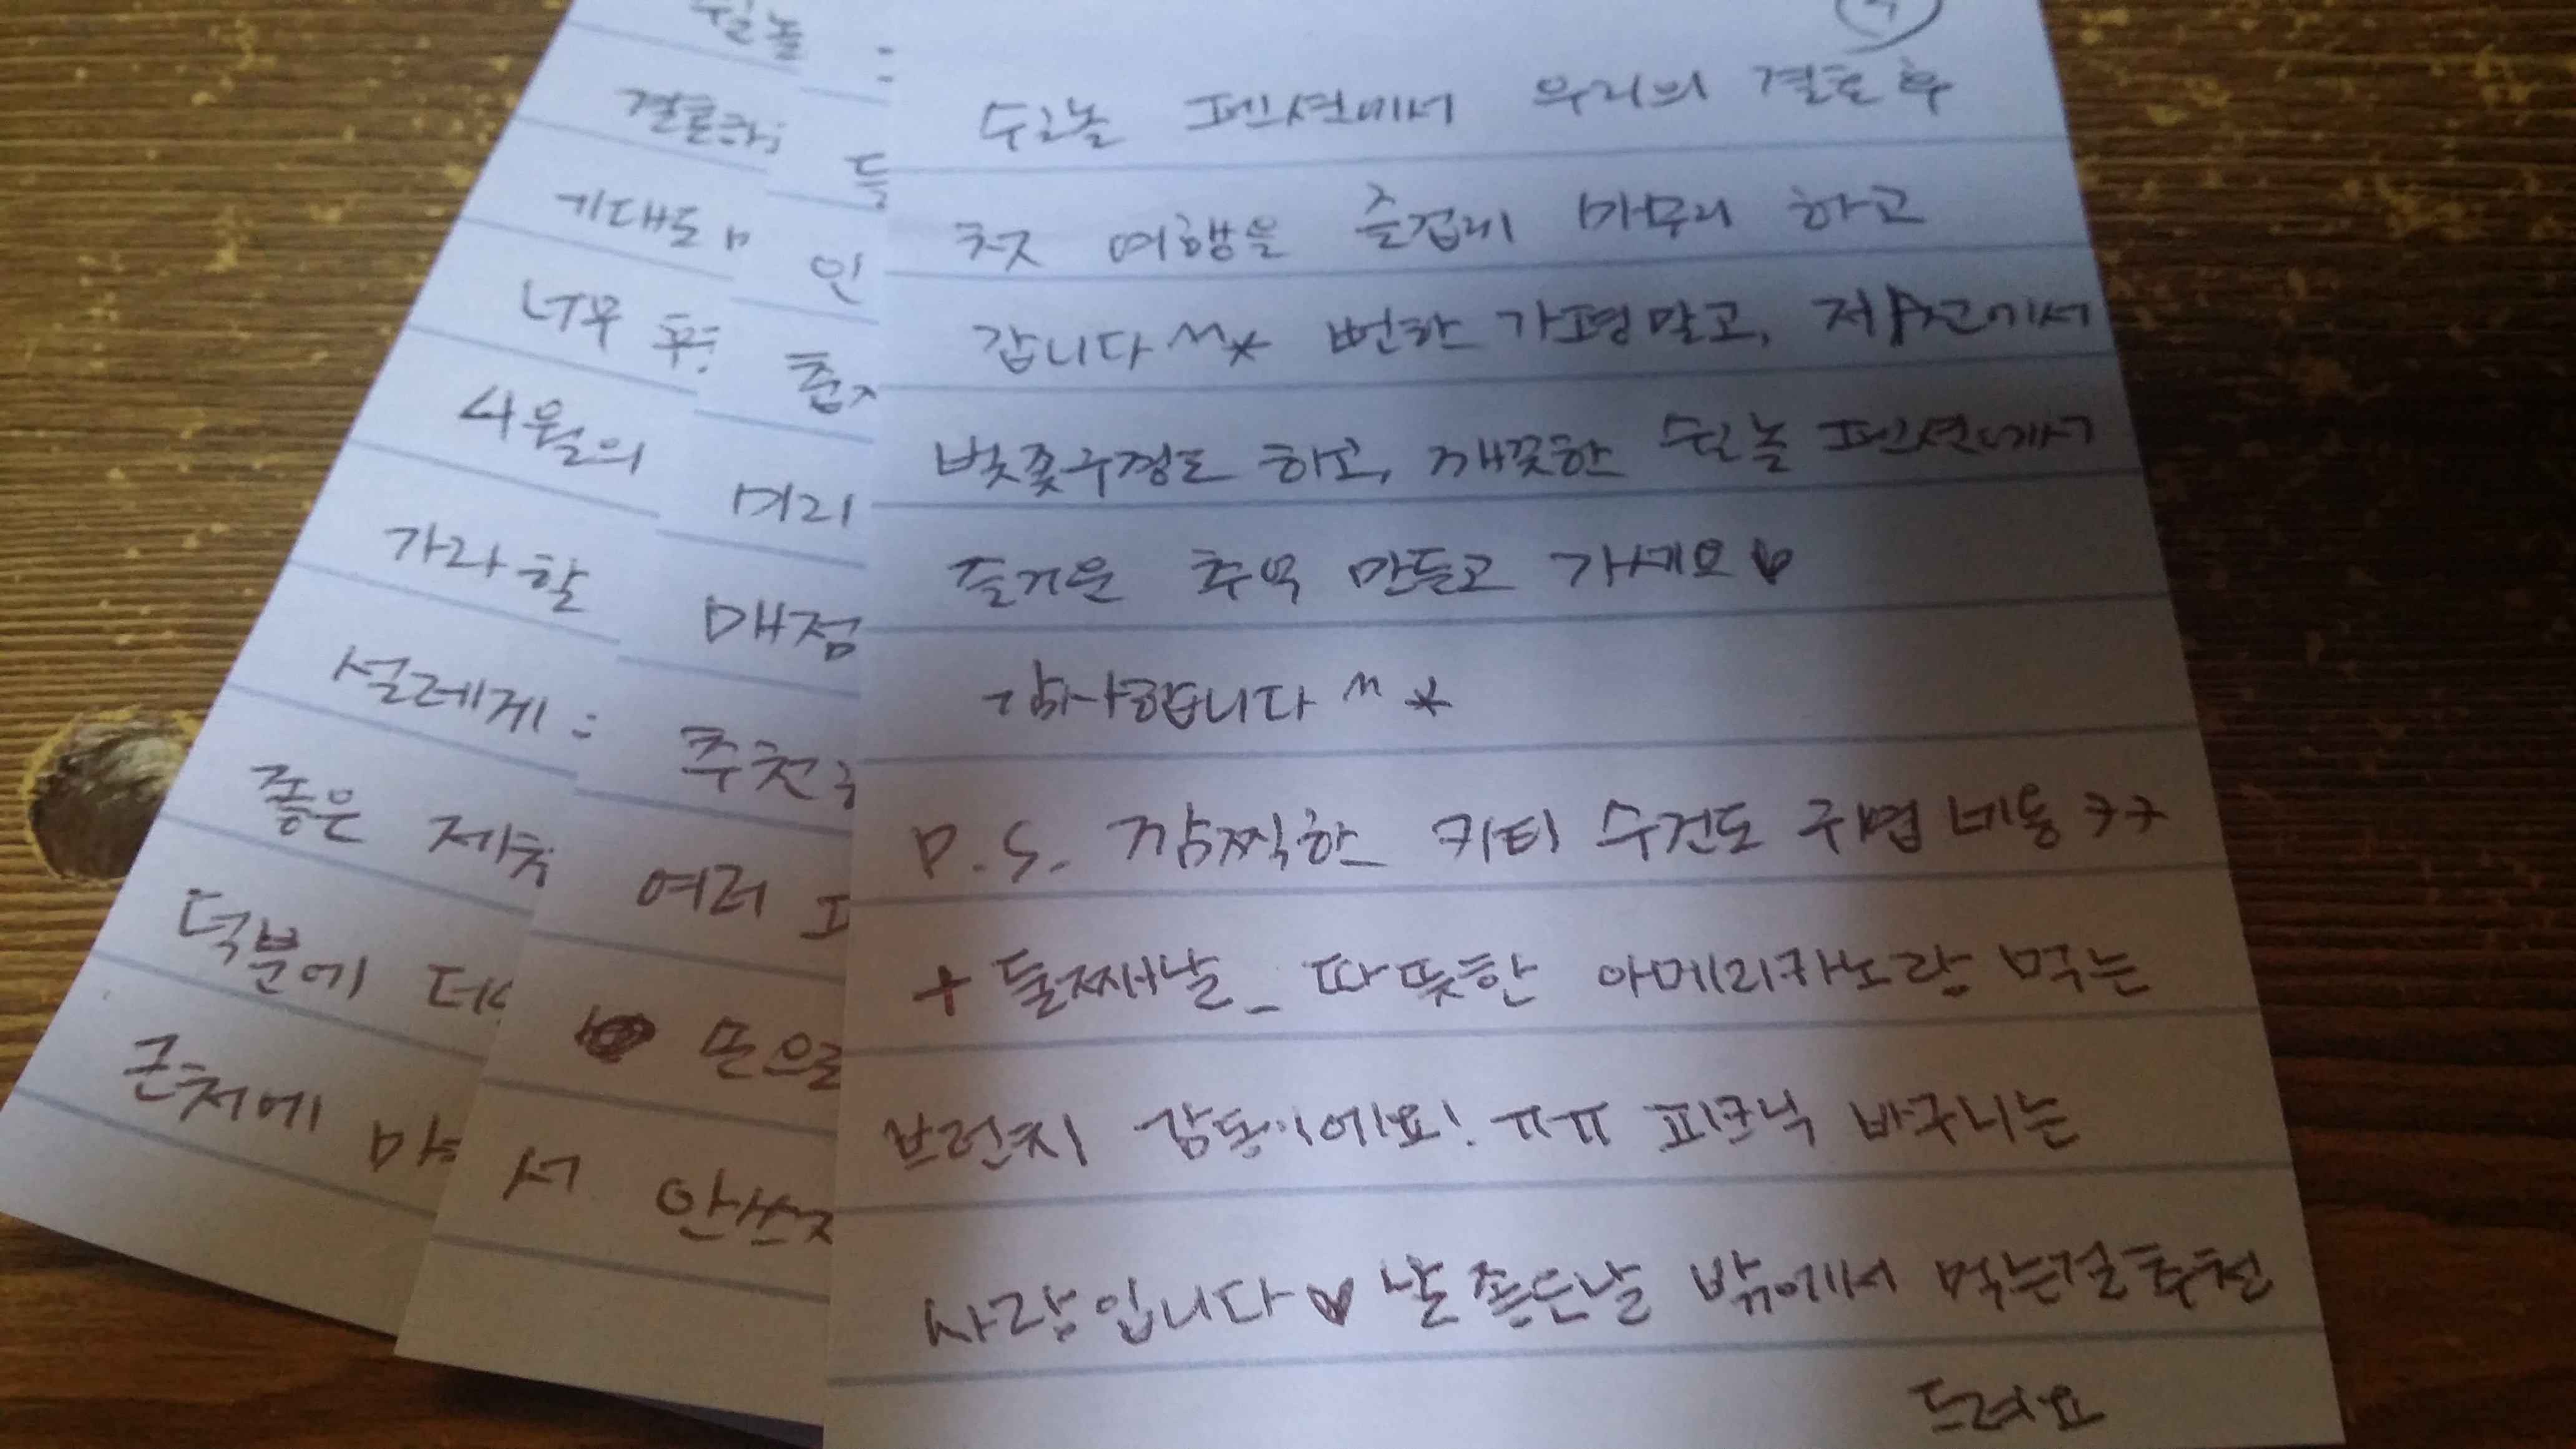 쉴놀
결혼하
기대도
너무
4월의
가라할
설레게
좋은 제
덕분에 더
근처에
들
인
춘
머리
매점
추천
여러
돈으로
서 안쓰
쉴놀 펜션에서 우리의 결혼 후
첫 여행을 즐겁게 마무리 하고
갑니다^^* 뻔한 가평말고, 저수지에서
벚꽃구경도 하고, 깨끗한 쉴놀 펜션에서
즐거운 추억 만들고 가세요♥
감사합니다^^*
P.S. 깜찍한 키티 수건도 귀염 비동ㅋㅋ
+ 둘째날_ 따뜻한 아메리카노랑 먹는
브런치 감동이에요! ㅠㅠ 피크닉 바구니는
사랑입니다♥ 날 좋은날 밖에서 먹는걸 추천
드려요